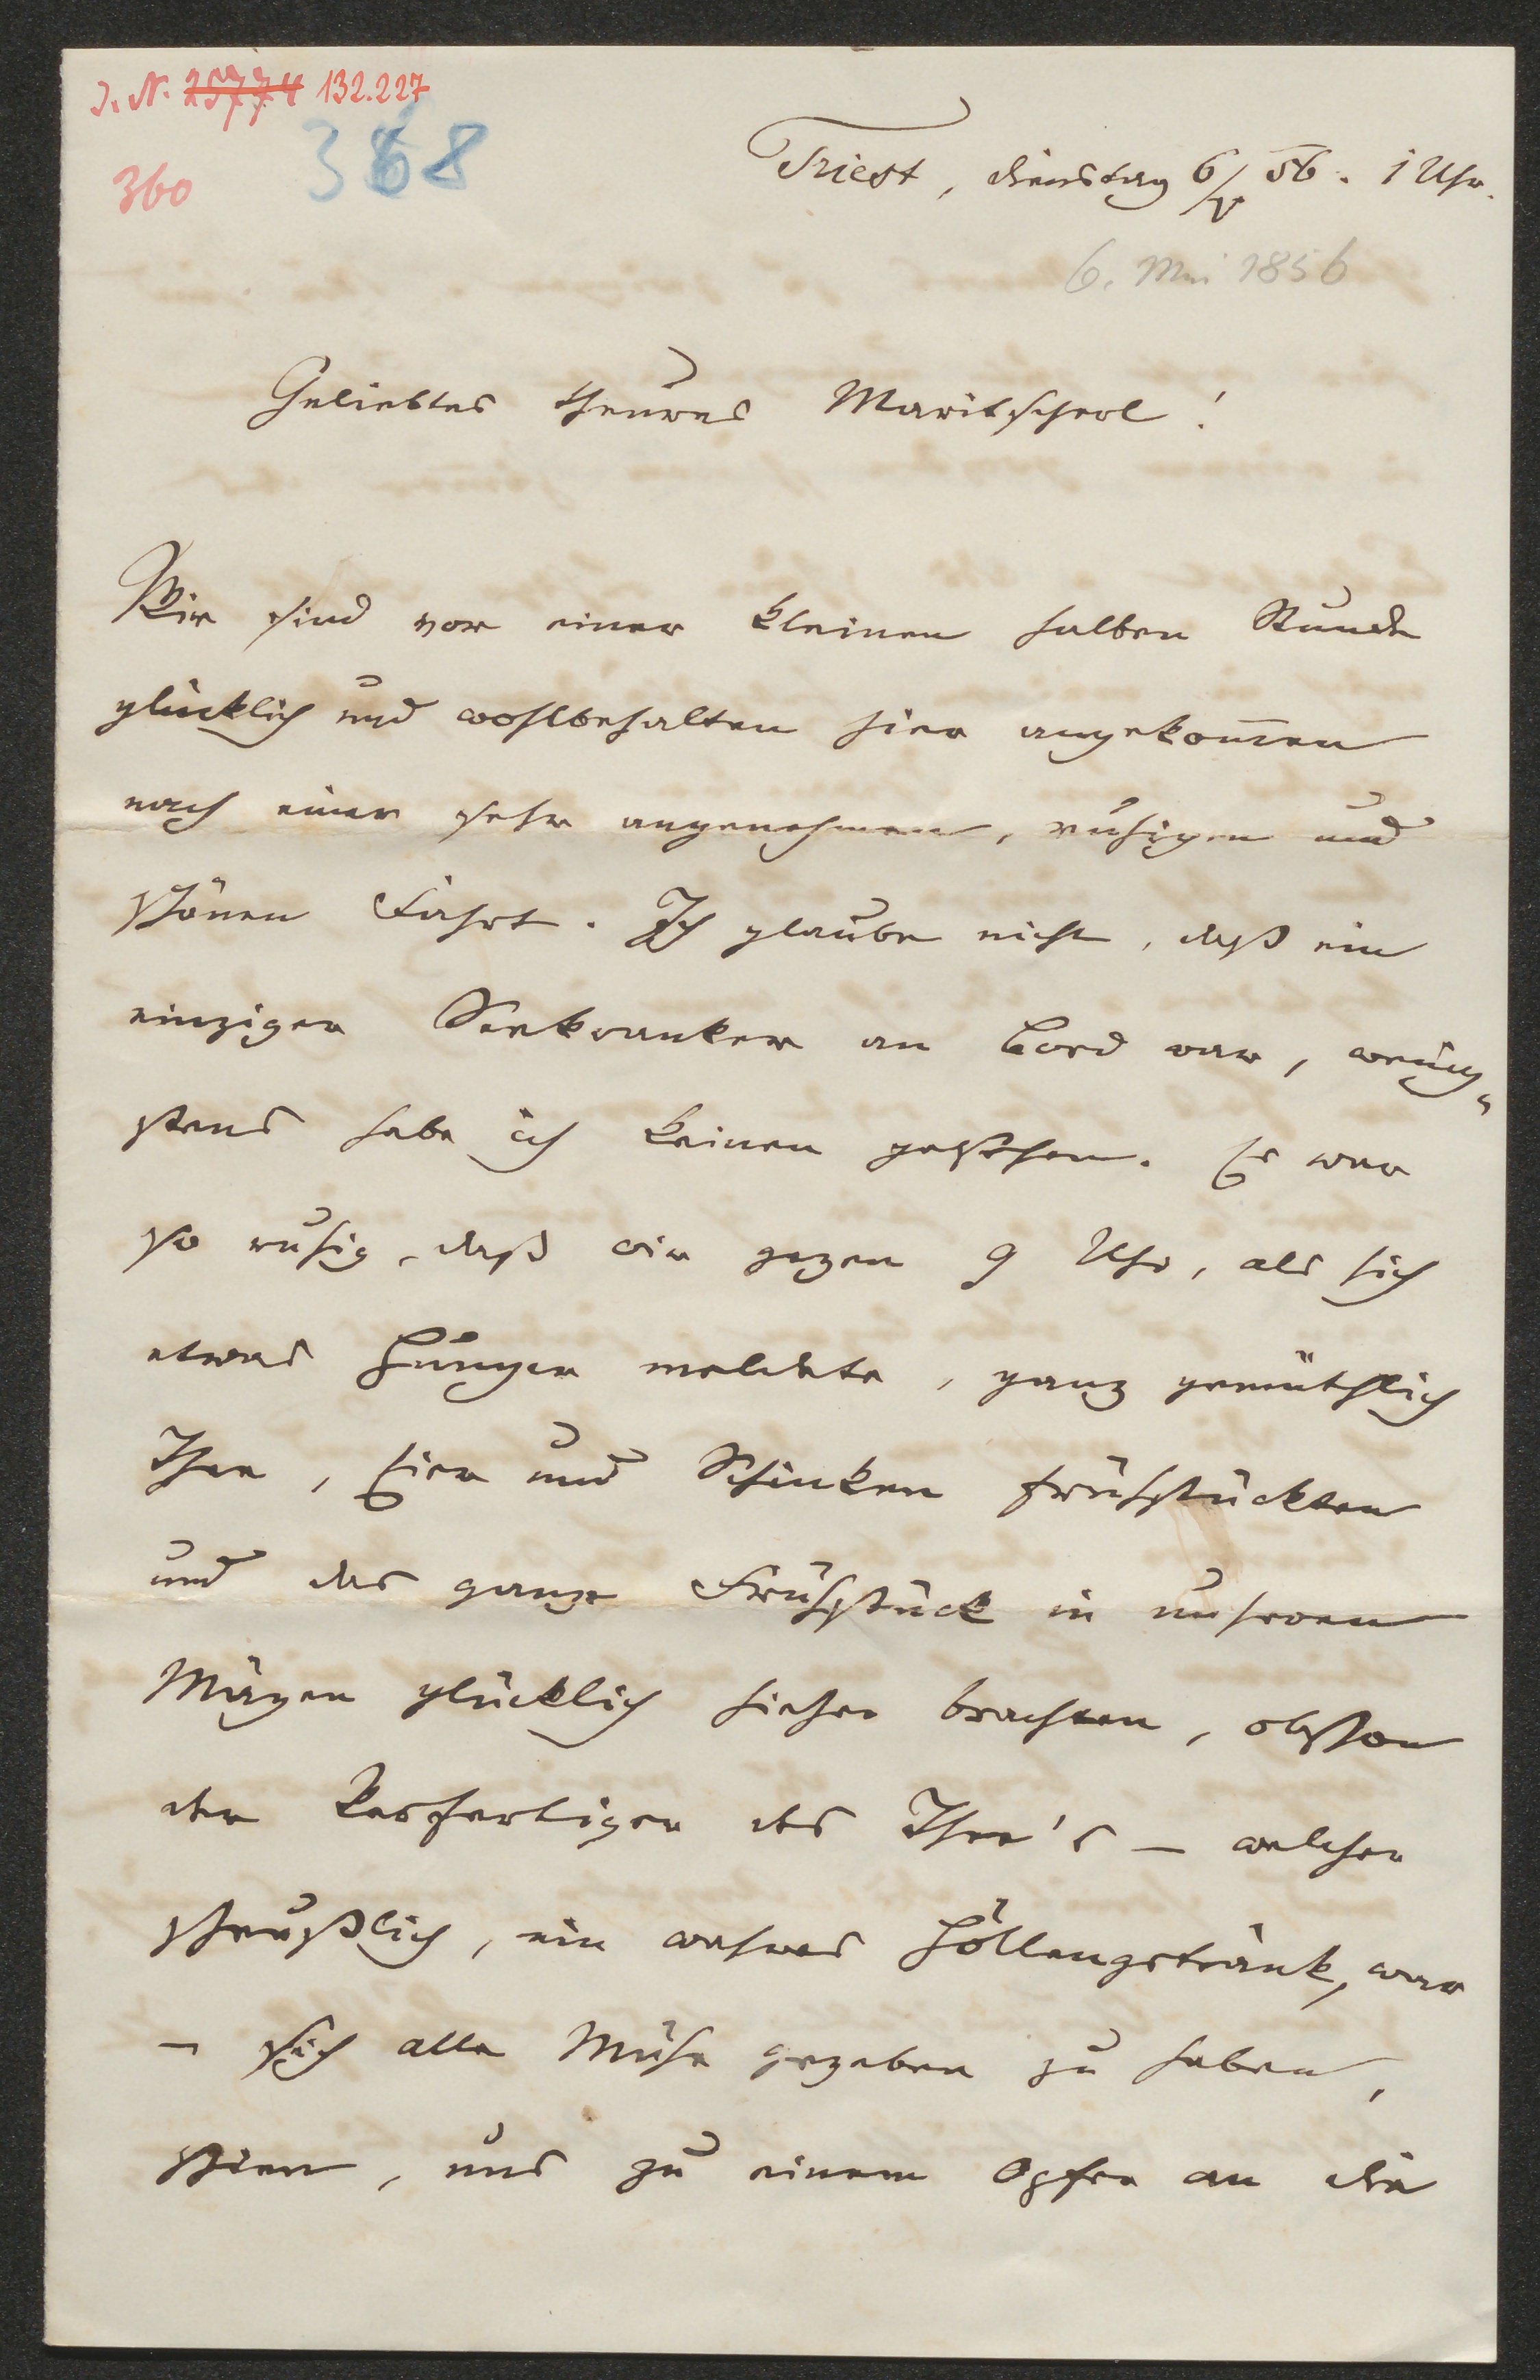 J. N. 25774 132.227
368
360
Triest, Dienstag 6/V 56. 1 Uhr.
6. Mai 1856
Geliebtes theures Maritscherl!
Wir sind vor einer kleinen halben Stunde
glücklich und wohlbehalten hier angekom̅en
nach einer sehr angenehmen, ruhigen und
schönen Fahrt. Ich glaube nicht, daß ein
einziger Seekranker an Bord war, wenig„
stens habe ich keinen gesehen. Es war
so ruhig, daß wir gegen 9 Uhr, als sich
etwas Hunger meldete, ganz gemüthlich
Thee, Eier und Schinken frühstückten
und das ganze Frühstück in unseren
Mägen glücklich hieher brachten, obschon
der Verfertiger des Thee's – welcher
scheußlich, ein wahres Höllengetränk, war
– sich alle Mühe gegeben zu haben,
schien, uns zu einem Opfer an die